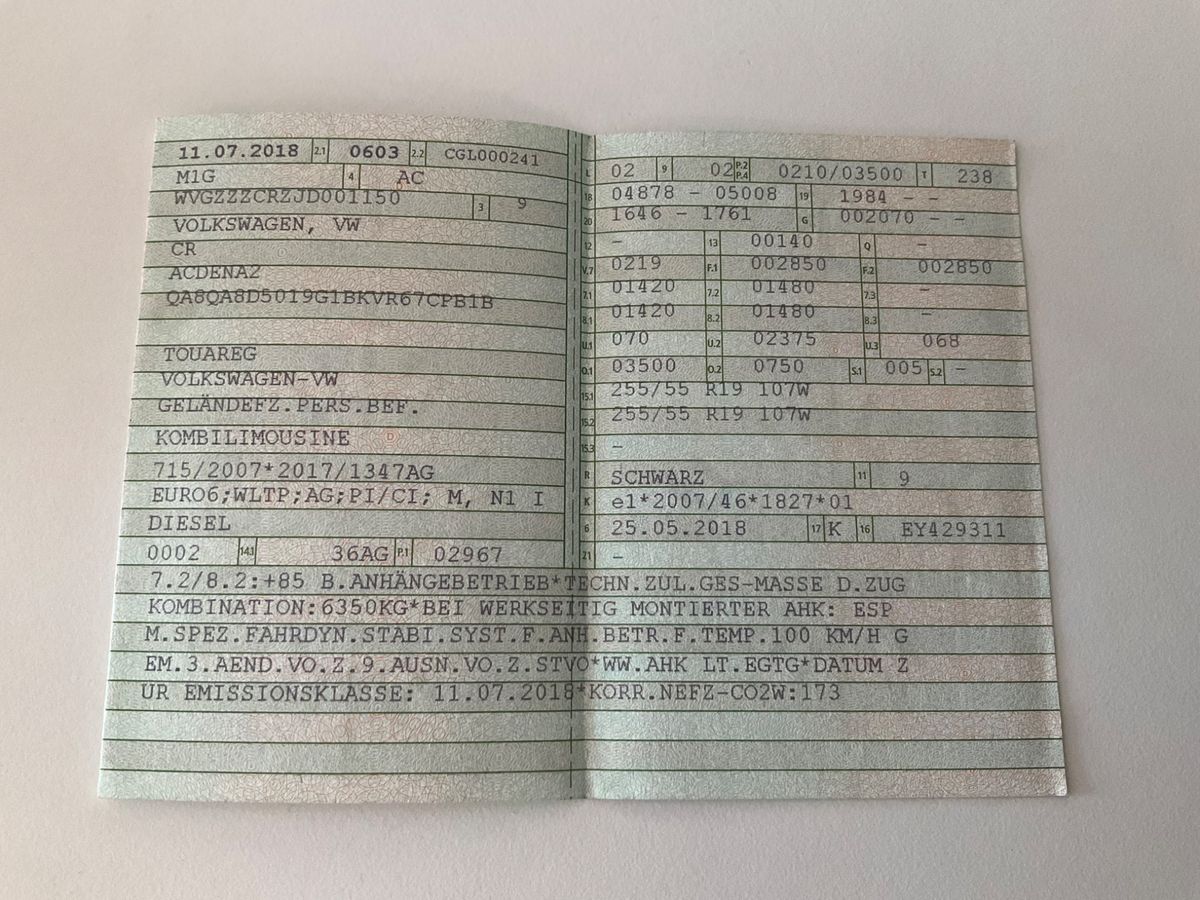 11.07.2018 2.1 0603 2.2 CGL000241
M1G 4 AC
WVGZZZCRZJD001150 3 9
VOLKSWAGEN, VW
CR
ACDENA2
QA8QA8D5019G1BKVR67CPB1B
TOUAREG
VOLKSWAGEN-VW
GELÄNDEFZ.PERS.BEF.
KOMBILIMOUSINE
715/2007*2017/1347AG
EURO6;WLTP;AG;PI/CI; M, N1 I
DIESEL
0002 14.1 36AG P.1 02967
L 02 9 02 P.2 P.4 0210/03500 T 238
18 04878 - 05008 19 1984 - -
20 1646 - 1761 G 002070 - -
12 - 13 00140 Q -
V.7 0219 F.1 002850 F.2 002850
7.1 01420 7.2 01480 7.3 -
8.1 01420 8.2 01480 8.3 -
U.1 070 U.2 02375 U.3 068
O.1 03500 O.2 0750 S.1 005 S.2 -
15.1 255/55 R19 107W
15.2 255/55 R19 107W
15.3 -
R SCHWARZ 11 9
K e1*2007/46*1827*01
6 25.05.2018 17 K 16 EY429311
21 -
7.2/8.2:+85 B.ANHÄNGEBETRIEB*TECHN.ZUL.GES-MASSE D.ZUG
KOMBINATION:6350KG*BEI WERKSEITIG MONTIERTER AHK: ESP
M.SPEZ.FAHRDYN.STABI.SYST.F.ANH.BETR.F.TEMP.100 KM/H G
EM.3.AEND.VO.Z.9.AUSN.VO.Z.STVO*WW.AHK LT.EGTG*DATUM Z
UR EMISSIONSKLASSE: 11.07.2018*KORR.NEFZ-CO2W:173